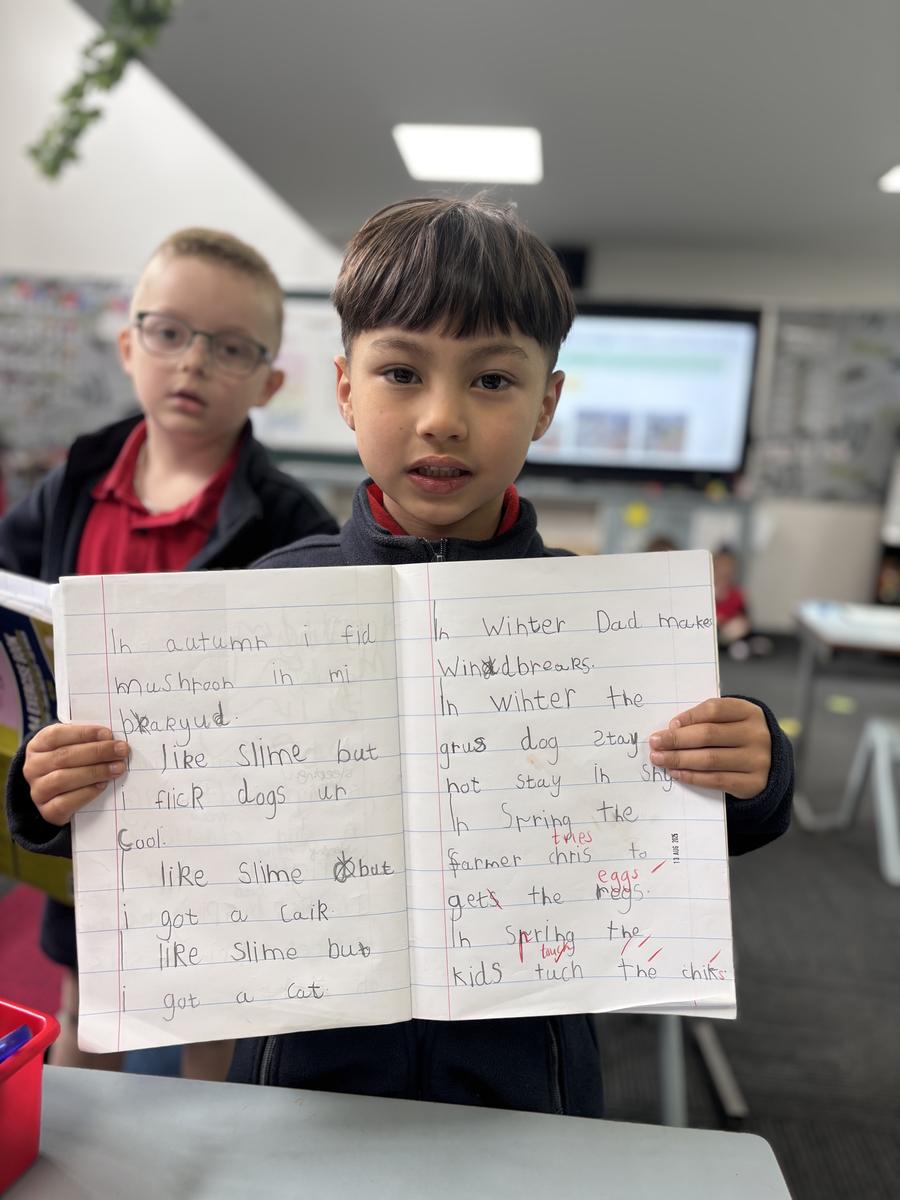 In autumn i fid
mushroon in mi
bkaryud.
I like slime but
i flick dogs ur
Cool.
I like slime but
i got a caik
I like slime but
i got a cat.
In Winter Dad makes
Windbreaks.
In winter the
grus dog stay
not stay in shy
In Spring the
tries
farmer chris to
eggs
gets the negs.
In Spring the
touch
kids tuch the chiks.
13 AUG 2025